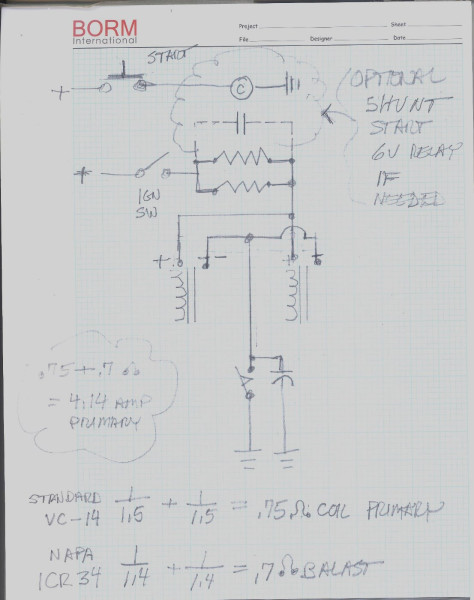 BORM
International
Project
Sheet
File
Designer
Date
START
+
C
OPTIONAL
SHUNT
START
6V RELAY
IF
NEEDED
+
IGN
SW
+ -
+ -
.75 + .7 Ω
= 4.14 AMP
PRIMARY
STANDARD
VC-14
1/1.5 + 1/1.5 = .75 Ω COIL PRIMARY
NAPA
ICR 34
1/1.4 + 1/1.4 = .7 Ω BALAST